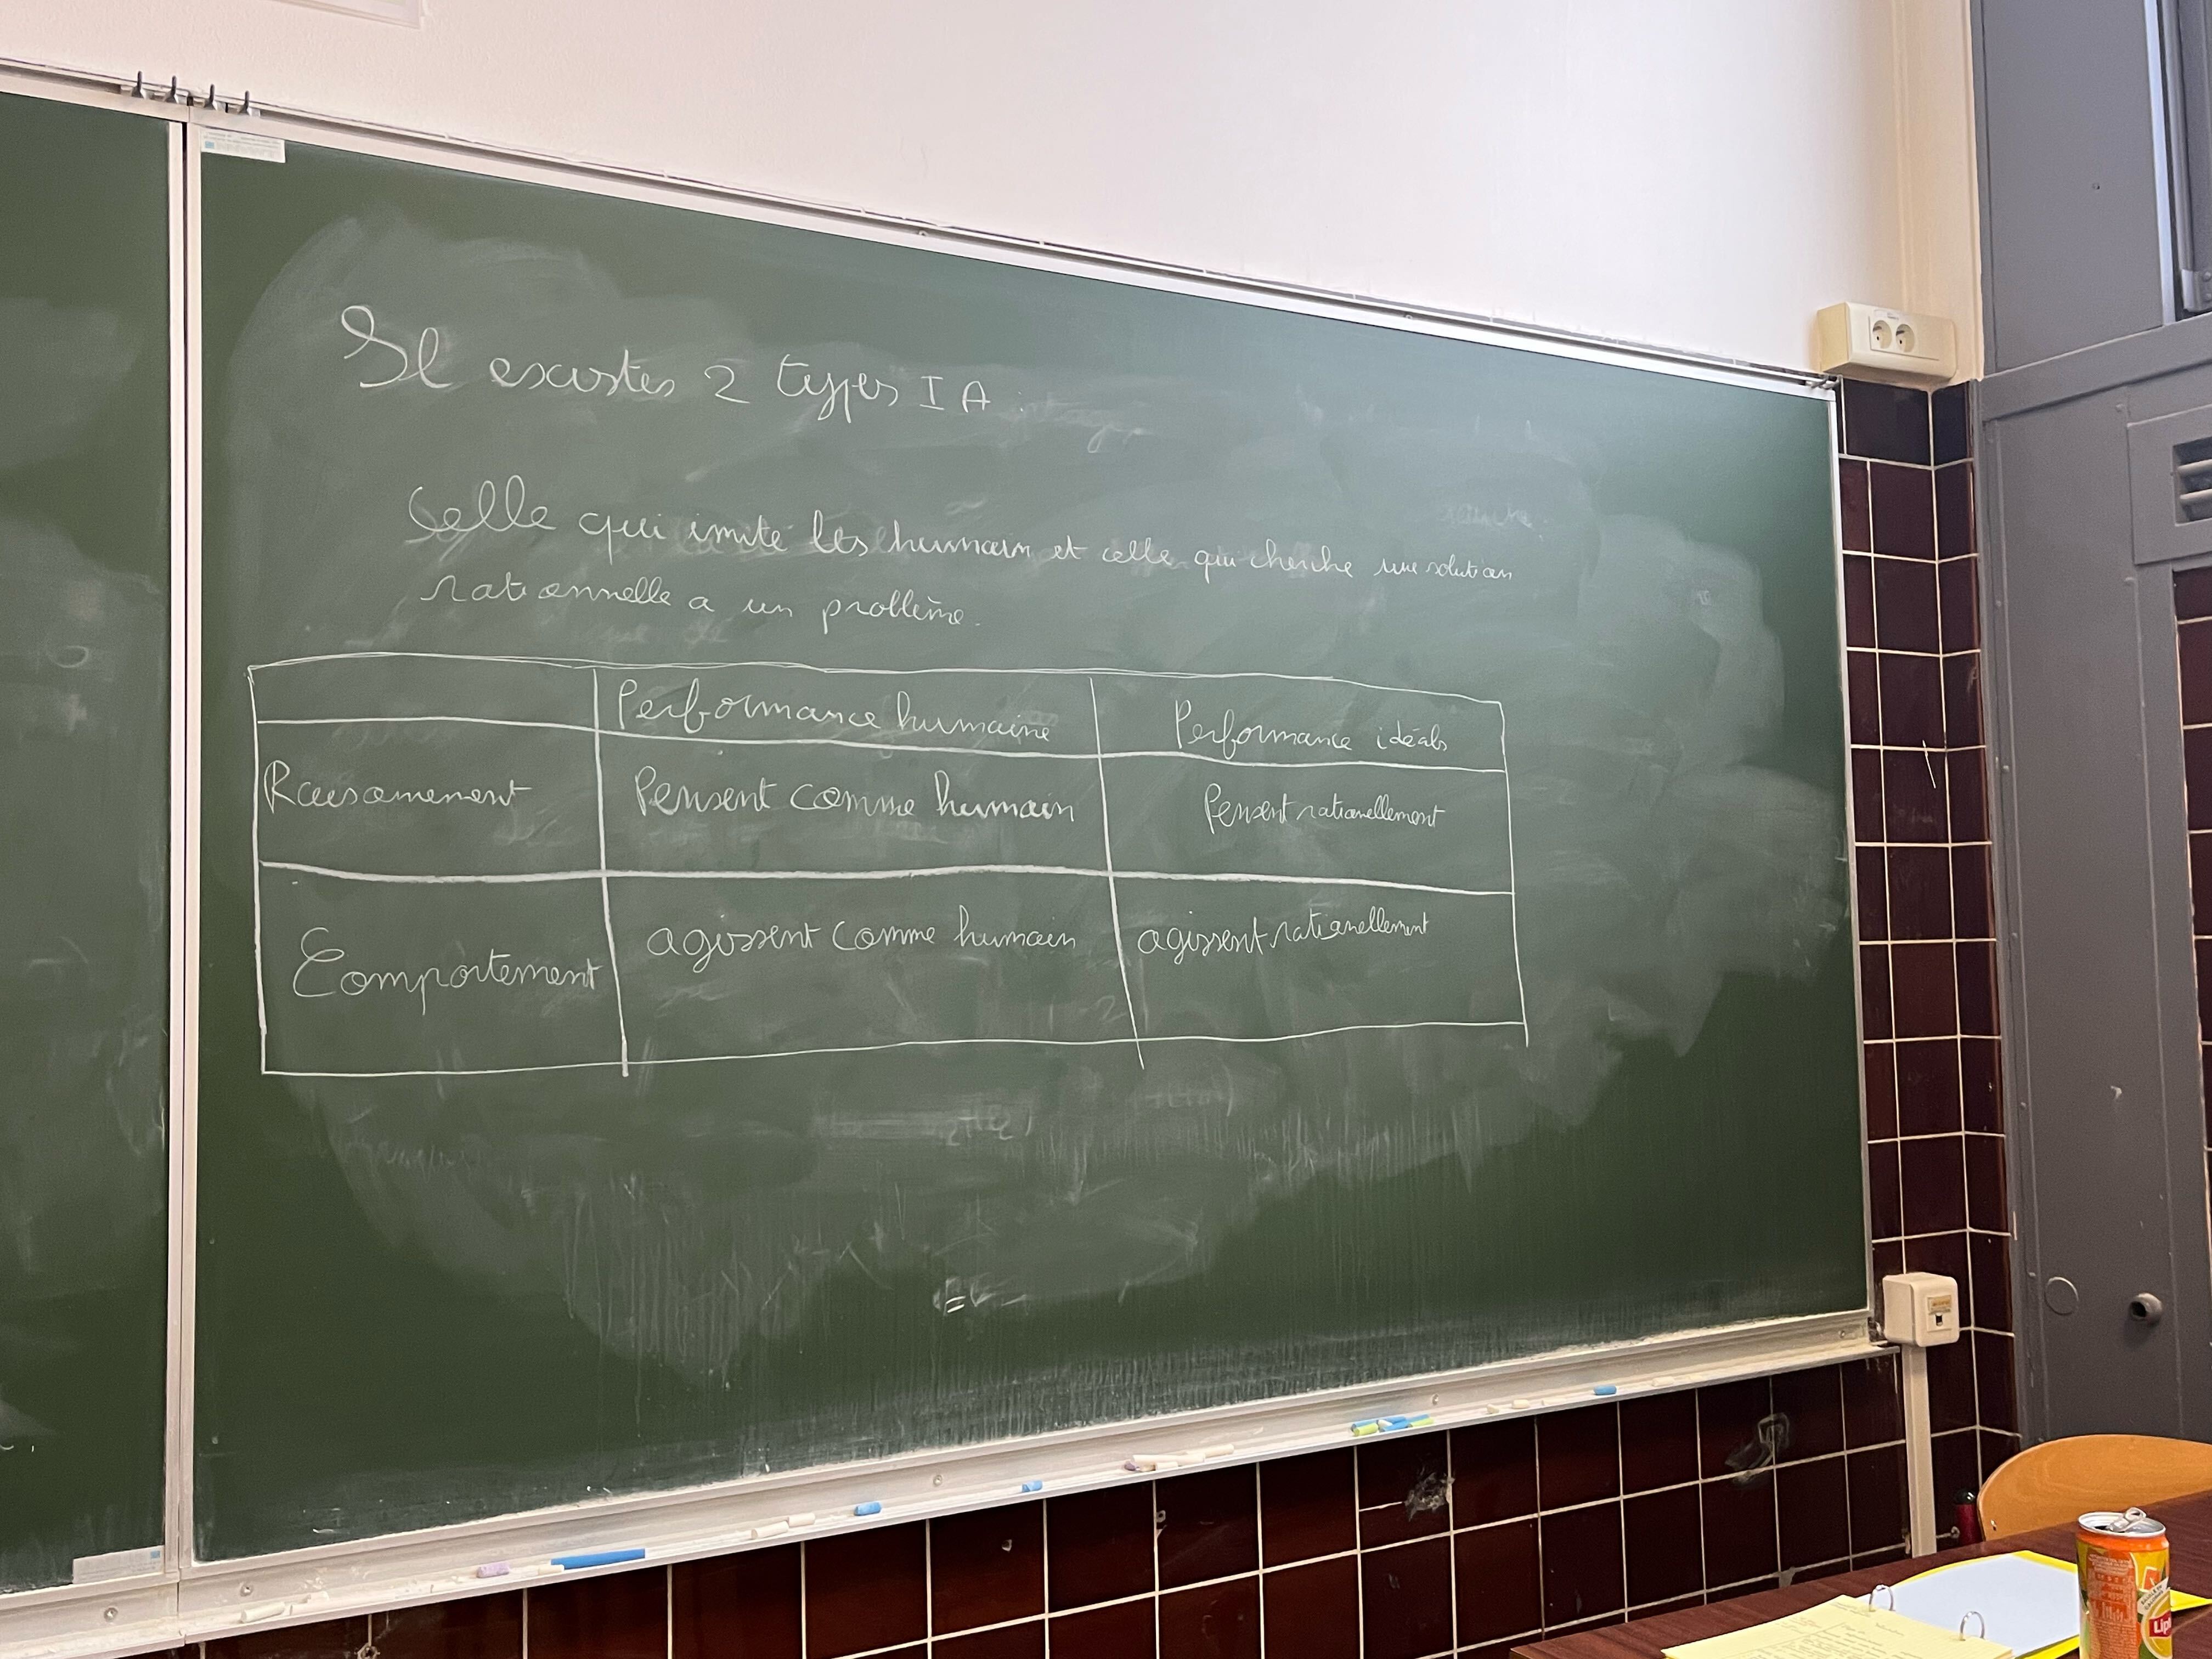 Il existes 2 types IA
Celle qui imite les humain et celle qui cherche une solution
rationnelle a un problème.
Performance humaine
Performance idéals
Raisonnement
Pensent comme humain
Pensent rationellement
Comportement
agissent comme humain
agissent rationellement
Lip